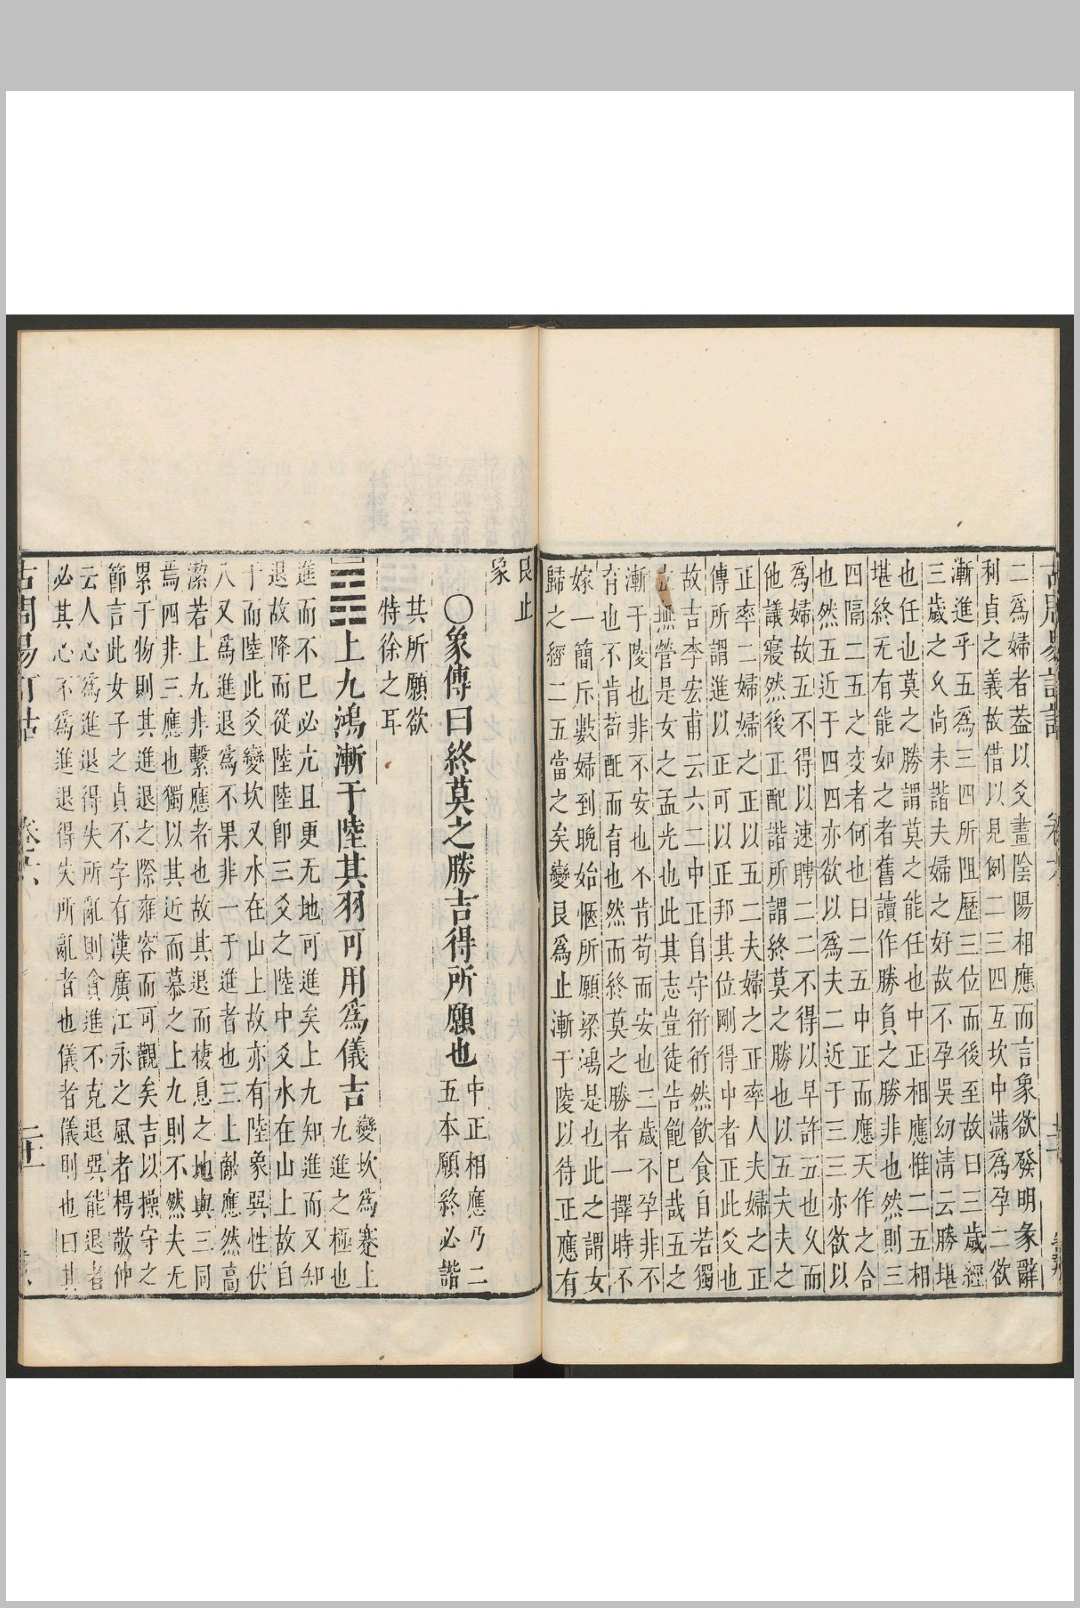 二爲婦者葢以爻畫陰陽相應而言象欲發明彖辭
利貞之義故借以見例二三四互坎中滿爲孕二欲
漸進乎五爲三四所阻歷三位而後至故曰三歲經
三歲之久尚未諧夫婦之好故不孕吳幼清云勝堪
也任也莫之勝謂莫之能任也中正相應惟二五相
堪終无有能如之者舊讀作勝負之勝非也然則三
四隔二五之交者何也曰二五中正而應天作之合
也然五近于四四亦欲以爲夫二近于三三亦欲以
爲婦故五不得以速聘二二不得以早許五也久而
他議寢然後正配諧所謂終莫之勝也以五夫夫之
正率二婦婦之正以五二夫婦之正率人夫婦之正
傳所謂進以正可以正邦其位剛得中者正此爻也
故吉李宏甫云六二中正自守衎衎然飲食自若獨
無營是女之孟光也此其志豈徒告飽巳哉五之
漸于陵也非不安也不肯苟而安也三歲不孕非不
育也不肯苟配而育也然而終莫之勝者一擇時不
嫁一簡斥數婦到晚始愜所願梁鴻是也此之謂女
歸之經二五當之矣變艮爲止漸于陵以待正應有
艮止
象
〇象傳曰終莫之勝吉得所願也中正相應乃二
五本願終必諧
其所願欲
特徐之耳
上九鴻漸于陸其羽可用爲儀吉變坎爲蹇上
九進之極也
進而不巳必亢且更无地可進矣上九知進而又知
退故降而從陸陸卽三爻之陸中爻水在山上故自
于而陸此爻變坎又水在山上故亦有陸象巽性伏
入又爲進退爲不果非一于進者也三上敵應然高
潔若上九非繫應者也故其退而棲息之地與三同
焉四非三應也獨以其近而慕之上九則不然夫无
累于物則其進退之際雍容而可觀矣吉以操守之
節言此女子之貞不字有漢廣江永之風者楊敬仲
云人心爲進退得失所亂則貪進不克退巽能退者
必其心不爲進退得失所亂者也儀者儀則也曰其